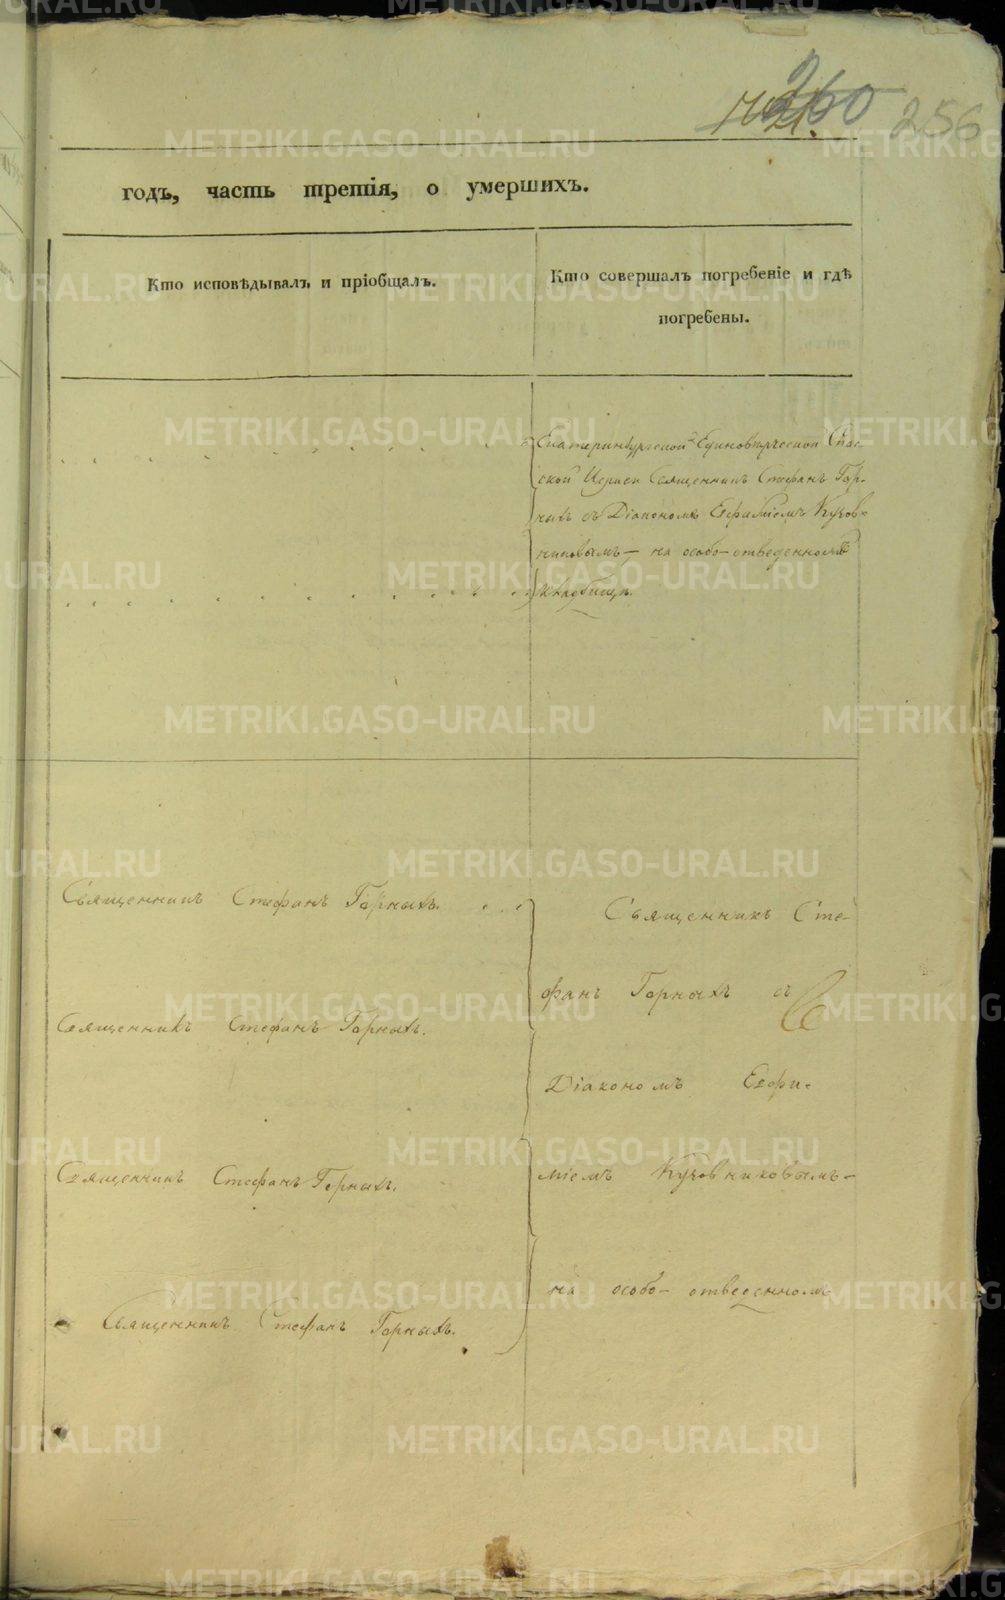 260
256
годъ, часть третія, о умершихъ.
Кто исповѣдывалъ и пріобщалъ.
Кто совершалъ погребеніе и гдѣ
погребены.
Екатеринбургской Единовѣрческой Спас-
ской Церкви Священникъ Стефанъ Гор-
ныхъ съ Діакономъ Евфиміемъ
на особо-отведенномъ
кладбищѣ.
Священникъ Стефанъ Горныхъ.
Священникъ Стефанъ Горныхъ.
Священникъ Стефанъ Горныхъ.
Священникъ Стефанъ Горныхъ.
Священникъ Сте-
фанъ Горныхъ съ
Діакономъ Евфи-
міемъ
на особо-отведенномъ
METRIKI.GASO-URAL.RU